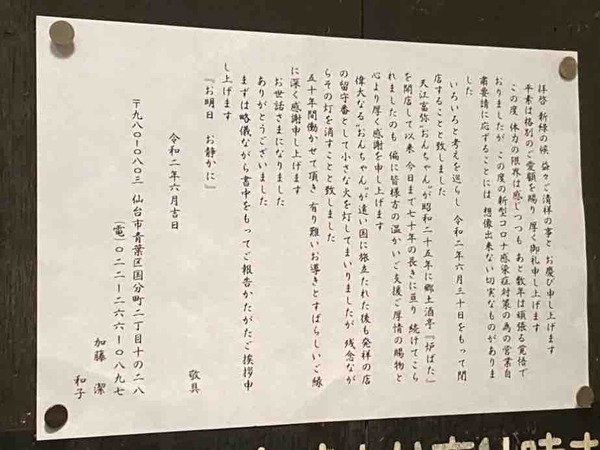 拝啓 新緑の候 益々ご清祥の事と お慶び申し上げます
平素は格別のご愛顧を賜り 厚く御礼申し上げます
この度 体力の限界は感じつつも あと数年は頑張る覚悟で
おりましたが この度の新型コロナ感染症対策の為の営業自
粛要請に応ずることには 想像出来ない切実なものがありま
した
いろいろと考えを巡らし 令和二年六月三十日をもって閉
店することと致しました
天江富弥“おんちゃん”が昭和二十五年に郷土酒亭『炉ばた』
を開店して以来 今日まで七十年の長きに亘り 続けてこら
れましたのも 偏に皆様方の温かいご支援ご厚情の賜物と
心より厚く感謝を申し上げます
偉大なる“おんちゃん”が遠い国に旅立たれた後も発祥の店
の留守番として小さな火を灯してまいりましたが 残念なが
らその灯を消すことと致しました
五十年間働かせて頂き 有り難いお導きとすばらしいご縁
に深く感謝申し上げます
お世話さまになりました
ありがとうございました
まずは略儀ながら書中をもってご報告かたがたご挨拶申
し上げます
『お明日 お静かに』
敬具
令和二年六月吉日
〒九八〇-〇八〇三 仙台市青葉区国分町二丁目十の二八
(電)〇二二-二六六-〇八九七
加藤 潔
和子